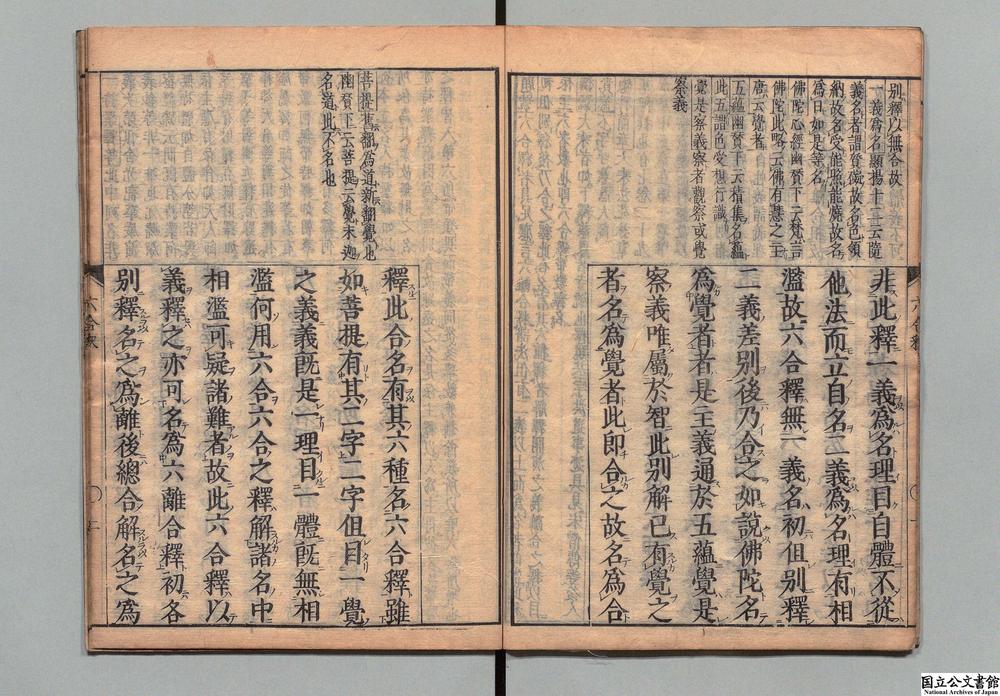 別釋以無合故
一義爲名顯揚十二云隨
義名者謂質礙故名色領
納故名受能照能燒故名
爲日如是等名
佛陀心經幽贊下云梵言
佛陀此略云佛有慧之主
唐云覺者
五蘊幽贊下云積集名蘊
此五謂色受想行識
覺是察義察者觀察或覺
察義
非此釋一義爲名理目自體不從
他法而立自名二義爲名理有相
濫故六合釋無一義名初但別釋
二義差別後乃合之如說佛陀名
爲覺者者是主義通於五蘊覺是
察義唯屬於智此別解已有覺之
者名爲覺者此即合之故名爲合
六合釋
菩提舊翻爲道新翻覺也
幽贊下云菩提云覺末迦
名道此不名也
釋此合名有其六種名六合釋雖
如菩提有其二字二字但目一覺
之義義旣是一理目一體旣無相
濫何用六合六合之釋解諸名中
相濫可疑諸難者故此六合釋以
義釋之亦可名爲六離合釋初各
別釋名之爲離後總合解名之爲
六合釋
国立公文書館
National Archives of Japan